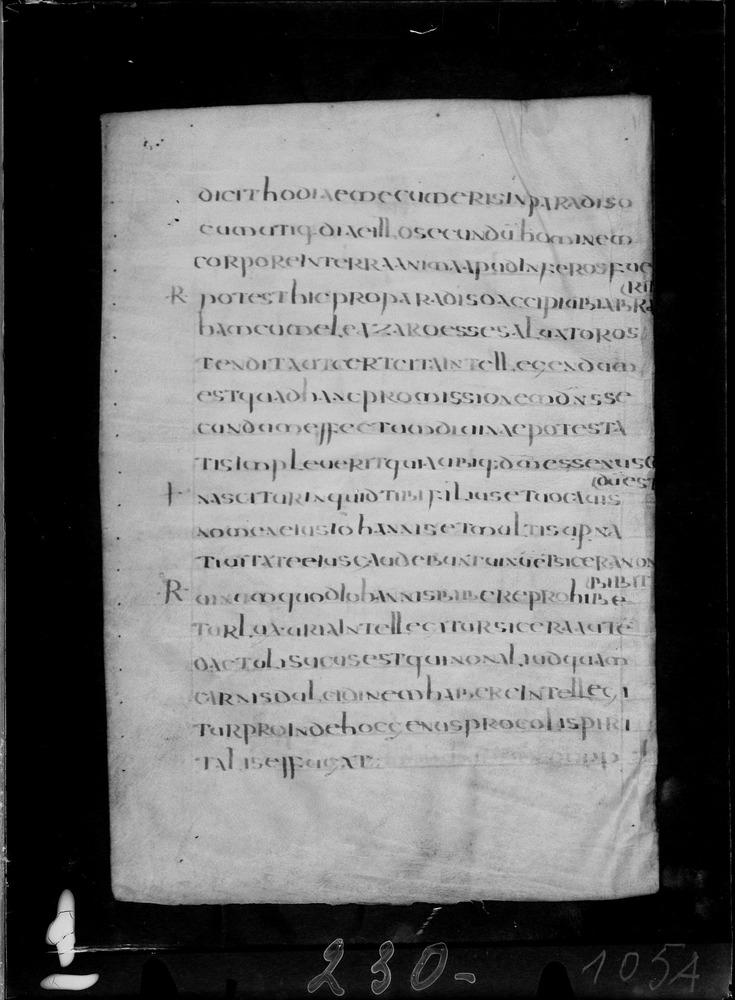 dicithodiaemecumerisinparadiso
cumutiq·diaeillosecundūhominem
corporeinterraanimaapudinferosfue
(rit
R potesthicproparadisoaccipiubiabra
hamcumeleazaroessesaluatoros
tenditautcerteitaintellegendum
estquodhancpromissionemdn̄sse
cundumeffectumdiuinaepotesta
tisimpleueritquiaubiq·dm̄essenus
(dūest
nasciturinquidtibifiliusetuocabis
nomeneiusiohannisetmultisupna
tiuitateeiusgaudebuntuinūetsiceranon
(bibit
R uinumquodiohannisbibereprohibe
turluxuriaintellegitursiceraautē
dactulisucusestquinonaliudquam
carnisdulcidinemhabereintellegi
turproindehocgenuspoculispiri
taliseffugat
230-
1054